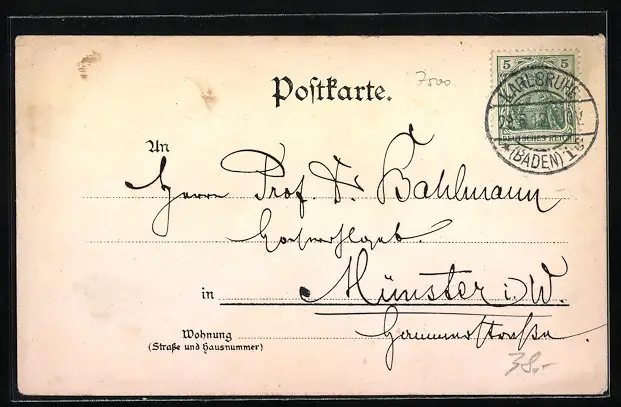 Postkarte.
7500
5 5
KARLSRUHE
DEUTSCHES REICH
*(BADEN) 1 g
An
Herrn Prof. Dr. Bahlmann
in Münster i. W.
Wohnung
(Straße und Hausnummer)
Hammerstraße.
38,-